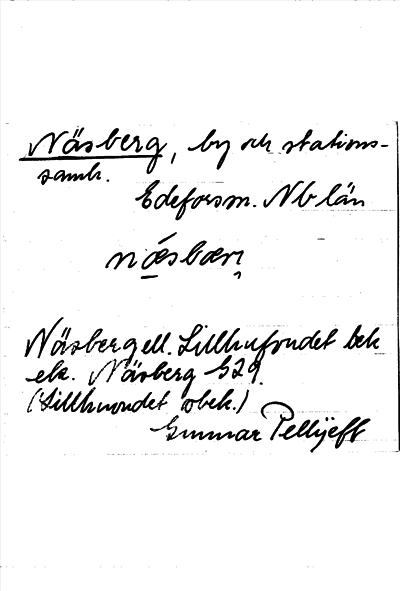 Näsberg, by och stations-
samh.
Edeforsm. Nb län
nǽ̱sbær̨
Näsberg ell. Sillhufvudet bek
ek. Näsberg G29.
(Sillhuvudet obek.)
Gunnar Pellijeff